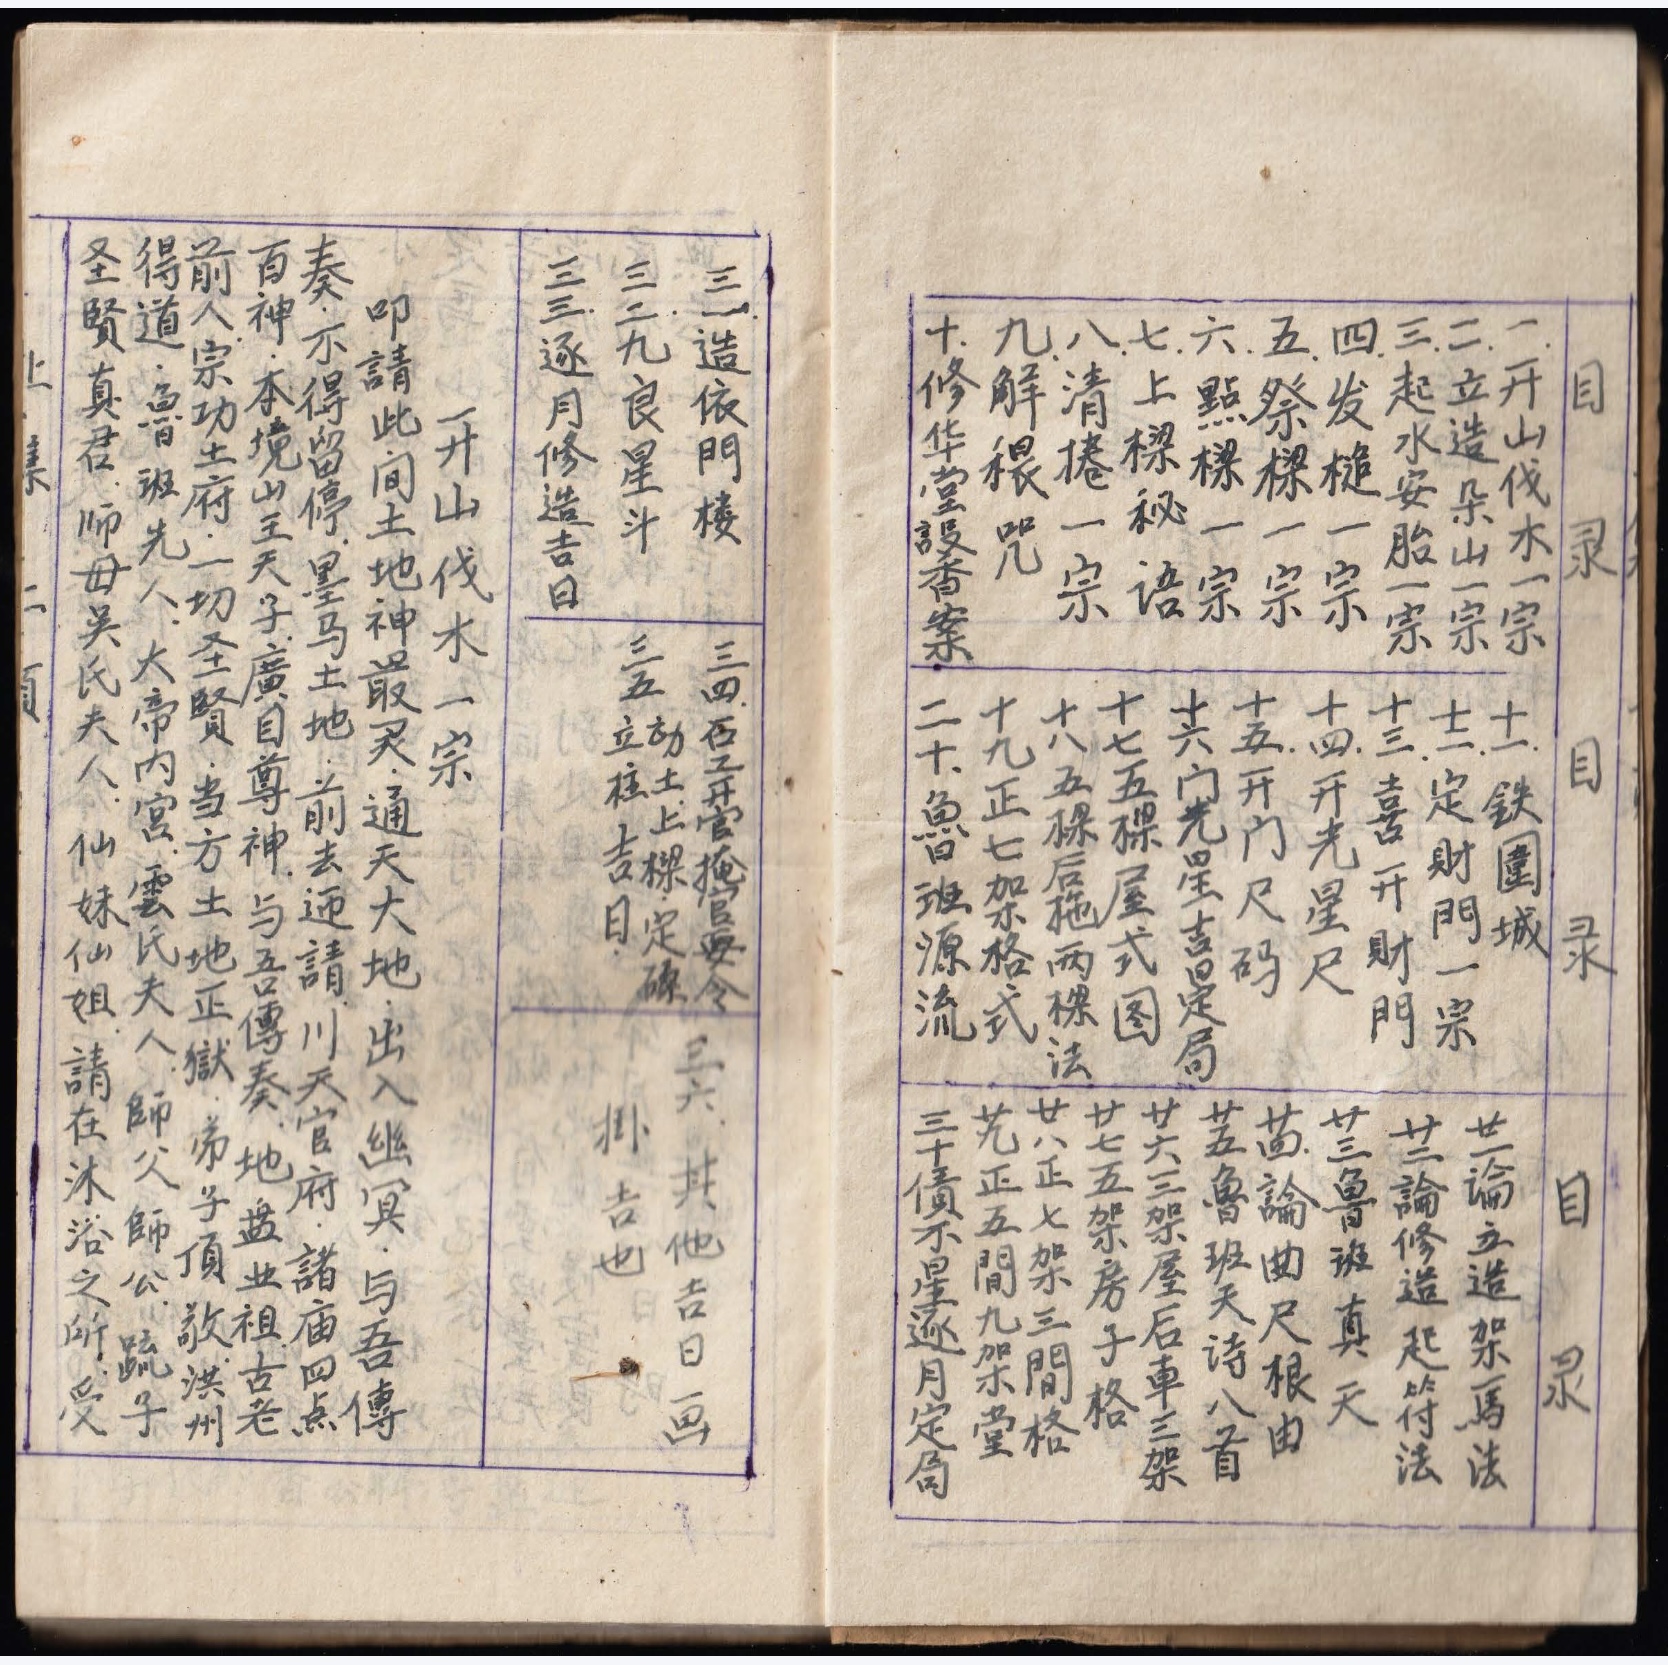 目录 目录 目录
一.开山伐木一宗
二.立造朵山一宗
三.起水安胎一宗
四.发槌一宗
五.祭樑一宗
六.點樑一宗
七.上樑秘语
八.清捲一宗
九.解穢咒
十.修华堂設香案
十一.鉄圍城
十二.定財門一宗
十三.喜开財門
十四.开光星尺
十五.开门尺码
十六门光星吉昌定局
十七五檁屋式图
十八五檁后拖两檁法
十九正七架格式
二十.魯班源流
廿一論立造架馬法
廿二論修造起符法
廿三魯班真天
廿四.論曲尺根由
廿五魯班天诗八首
廿六三架屋后車三架
廿七五架房子格
廿八正七架三間格
廿九正五間九架堂
三十债不星逐月定局
三一.造依門楼
三二.九良星斗
三三.逐月修造吉日
三四.石工开官掩官要令
三五动土.上樑.定磉
立柱吉日.
三六.其他吉日一画
掛吉也
开山伐木一宗
叩請此间土地神最灵.通天大地.出入幽冥.与吾傳
奏.不得留停.墨马土地.前去迎請.川天官府.諸庙四点
百神.本境山王天子.廣目尊神.与吾傳奏.地盘业祖.古老
前人.宗功土府.一切圣賢.当方土地正獄.弟子頂敬.洪州
得道.魯班先人.大帝内宮.雲氏夫人.師父師公.蹠子
圣賢真君.师母吴氏夫人.仙妹仙姐.請在沐浴之所.受
上集二頁